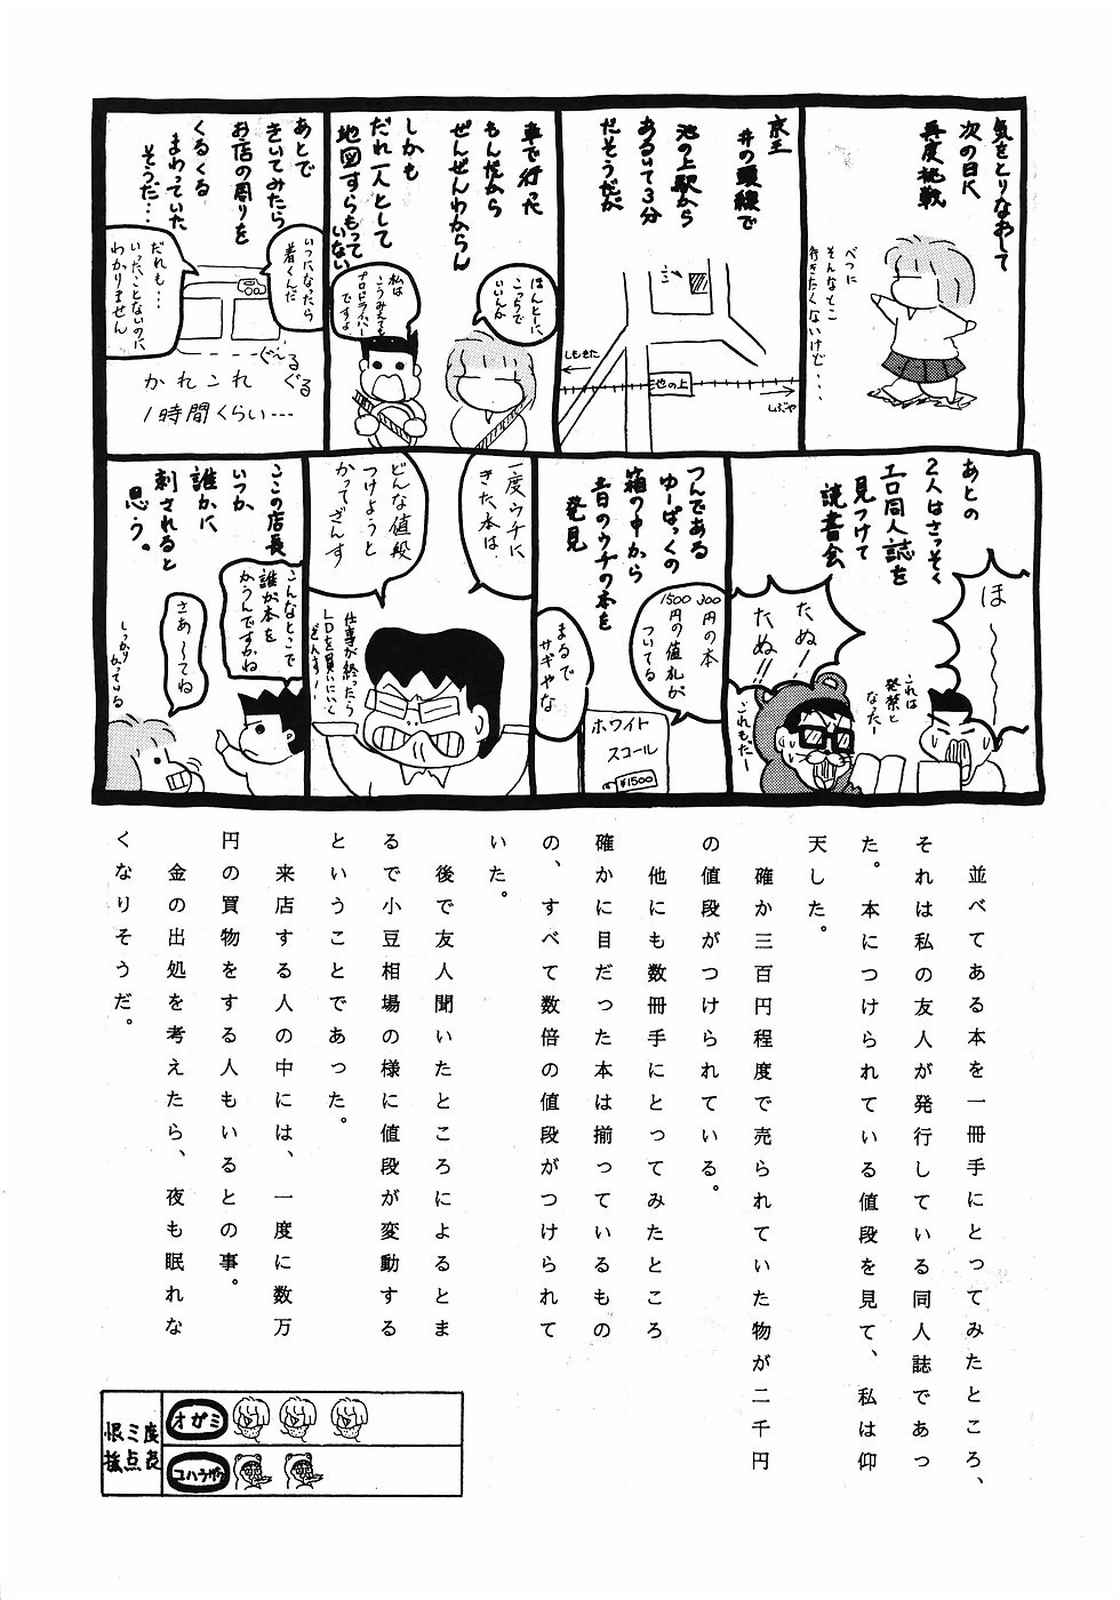 気をとりなおして
次の日に
再度挑戦
べつに
そんなとこ
行きたくないけど・・・
京王
井の頭線で
池の上駅から
あるいて3分
だそうだが
しもきた
池の上
しぶや
車で行った
もんだから
ぜんぜんわからん
しかも
だれ一人として
地図すらもって
いない
ほんとーに
こっちで
いいんか
私は
こうみえても
プロドライバー
ですよ
あとで
きいてみたら
お店の周りを
くるくる
まわっていた
そうだ・・・
いつになったら
着くんだ
だれも・・・
いったことないのに
わかりません
ぐーるぐる
かれこれ
1時間くらい・・・
あとの
2人はさっそく
エロ同人誌を
見つけて
読書会
ほ〜〜〜
これは
発禁と
なったー
たぬー!!
たぬ!!
これもだー
つんである
ゆーぱっくの
箱の中から
昔のウチの本を
発見
300円の本
1500円の値札が
ついてる
まるで
サギやな
ホワイト
スコール
¥1500
一度ウチに
きた本は、
どんな値段
つけようと
かってざんす
仕事が終ったら
LDを買いにいく
ざんす!!
ここの店長
いつか
誰かに
刺されると
思う。
こんなとこで
誰が本を
かうんですかね
さあ〜てね
しっかり
かっている
並べてある本を一冊手にとってみたところ、
それは私の友人が発行している同人誌であっ
た。本につけられている値段を見て、私は仰
天した。
確か三百円程度で売られていた物が二千円
の値段がつけられている。
他にも数冊手にとってみたところ
確かに目だった本は揃っているもの
の、すべて数倍の値段がつけられて
いた。
後で友人聞いたところによるとま
るで小豆相場の様に値段が変動する
ということであった。
来店する人の中には、一度に数万
円の買物をする人もいるとの事。
金の出処を考えたら、夜も眠れな
くなりそうだ。
オガミ
ユハラザワ